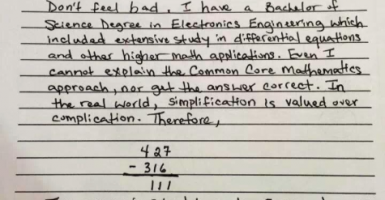 Don't feel bad. I have a Bachelor of
Science Degree in Electronics Engineering which
included extensive study in differential equations
and other higher math applications. Even I
cannot explain the Common Core Mathematics
approach, nor get the answer correct. In
the real world, simplification is valued over
complication. Therefore,
427
- 316
111